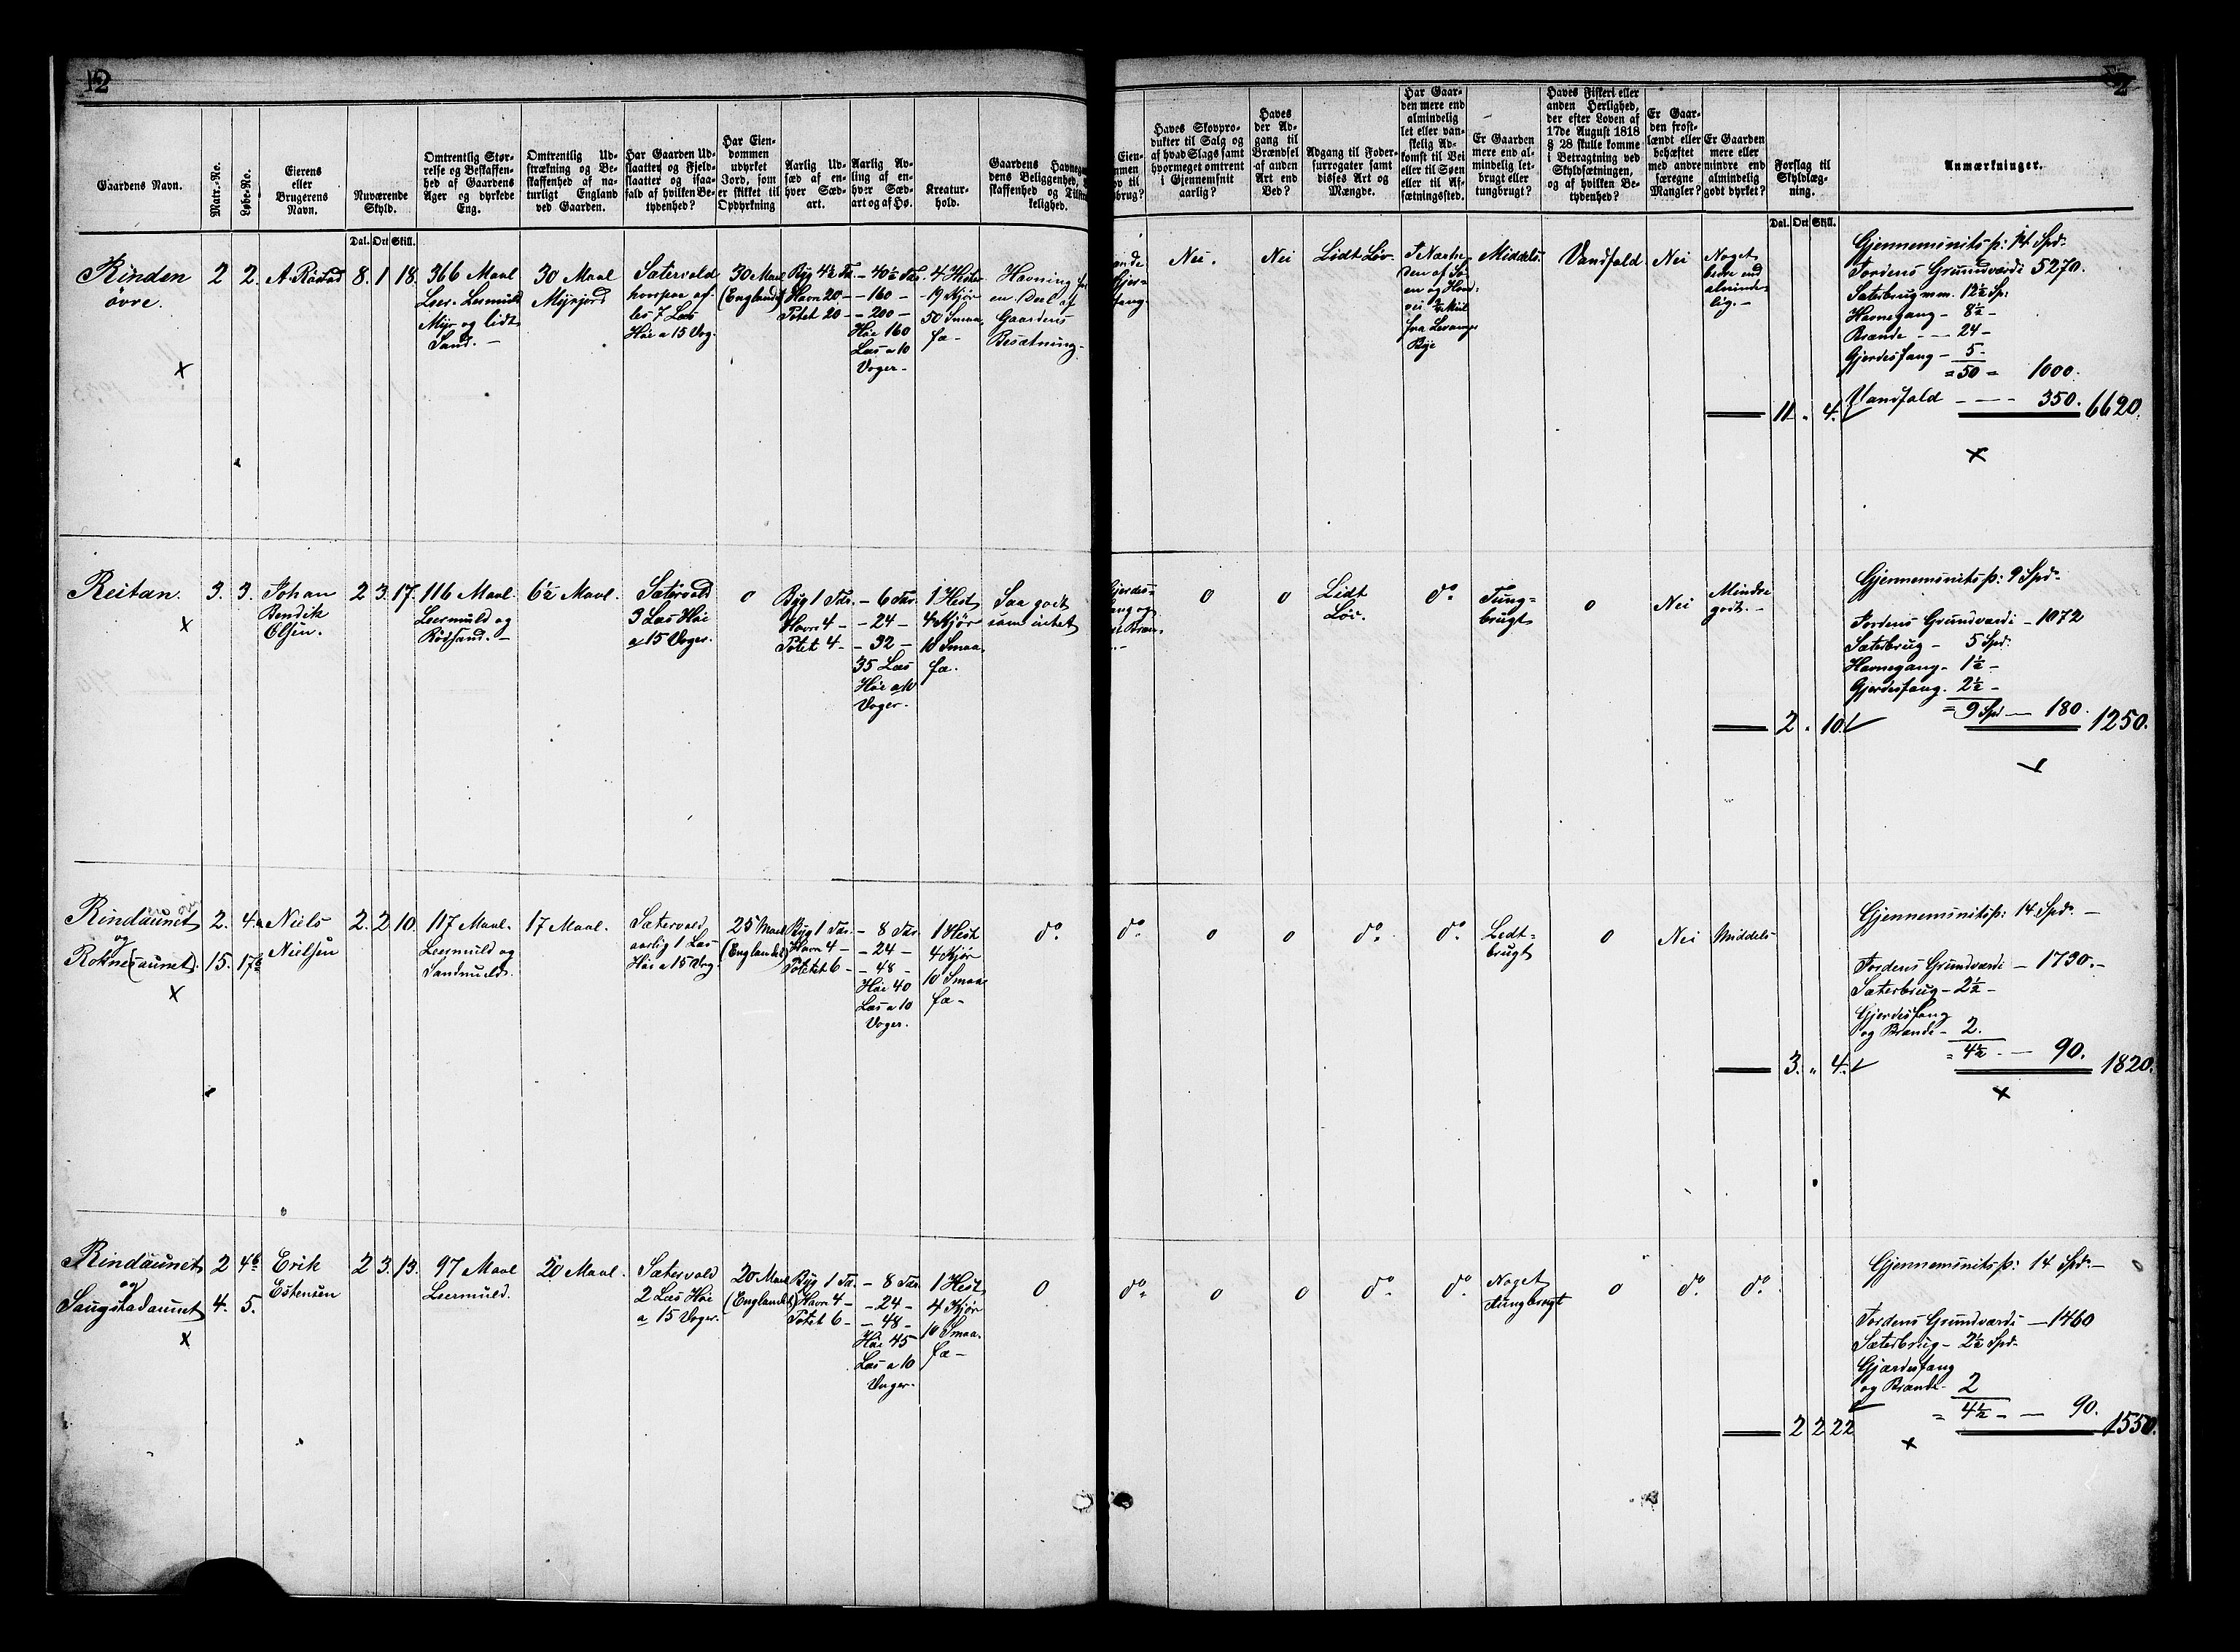 12
2
Gaardens Navn.
Matr.-No.
Løbe-No.
Eierens
eller
Brugerens
Navn.
Nuværende
Skyld.
Omtrentlig Stør-
relse og Beskaffen-
hed af Gaardens
Ager og dyrkede
Eng.
Omtrentlig Ud-
strækning og Be-
skaffenhed af na-
turligt England
ved Gaarden.
Har Gaarden Ud-
slaatter og Fjeld-
slaatter og isaa-
fald af hvilken Be-
tydenhed?
Har Eien-
dommen
udyrket
Jord, som
er skikket til
Opdyrkning
Aarlig Ud-
sæd af en-
hver Sæd-
art.
Aarlig Av-
ling af en-
hver Sæd-
art og af Hø.
Kreatur-
hold.
Gaardens Havnegang
dens Beliggenhed,
skaffenhed og Tilstræ
kelighed.
Eien-
mmen
v til
brug?
Haves Skovpro-
dukter til Salg og
af hvad Slags samt
hvormeget omtrent
i Gjennemsnit
aarlig?
Haves
der Ad-
gang til
Brændsel
af anden
Art end
Ved?
Adgang til Foder-
surrogater samt
disses Art og
Mængde.
Har Gaar-
den mere end
almindelig
let eller van-
skelig Ad-
komst til Vei
eller til Søen
eller til Af-
sætningssted.
Er Gaarden
mere end al-
mindelig let-
brugt eller
tungbrugt?
Haves Fiskeri eller
anden Herlighed,
der efter Loven af
17de August 1818
§ 28 skulle komme
i Betragtning ved
Skyldsætningen,
og af hvilken Be-
tydenhed?
Er Gaar-
den frost-
lændt eller
behæftet
med andre
særegne
Mangler?
Er Gaarden
mere eller
mindre end
almindelig
godt dyrket?
Forslag til
Skyldlæg-
ning.
Anmærkninger.
Dal. Ort Skill.
Dal. Ort Skill.
Rinden
övre.
2
2.
A. Röstad
8. 1 18.
366 Maal
Leer- Leermuld
Myr og lidt
Sand. -
30 Maal
Myrjord
Sætervold
hvorpaa af-
les 7 Læs
Höe a 15 Vog.
30 Maal
(Englandet)
Byg 4½ Tdr.
Havre 20 -
Potet 20 -
- 40½ Tdr.
- 160 -
- 200 -
Höe 160
Læs a 10
Voger -
4 Heste
19 Kjör
50 Smaa-
fæ -
Havning for
en Deel af
Gaardens
Besætning -
Nei.
Nei
Lidt Löv.
I Nærhe-
den af Sö-
en og Hoved-
vei ½ Mil
fra Levanger
Bye
Middels
Vandfald
Nei
Noget
bedre end
alminde-
lig. -
11 " 4.
Gjennemsnitsp: 14 Spd.
Jordens Grundværdi 5270.
Sæterbrug m.m. 12½ Sp:
Havnegang - 8½ -
Brænde - - 24 -
Gjerdesfang - 5 -
= 50 = 1000.
Vandfald - - - 350. 6620.
Reitan.
3.
3.
Johan
Bendik
Olsen.
2 3. 17.
116 Maal
Leermuld og
Rödsand. -
6½ Maal.
Sætervold
3 Læs Höe
a 15 Voger.
0
Byg 1 Tdr.
Havre 4 -
Potet 4 -
- 6 Tdr.
- 24 -
- 32 -
35 Læs
Höe a 10
Voger.
1 Hest
4 Kjör
10 Smaa-
fæ.
Saa godt
som intet
0
0
Lidt
Löv.
do
Tung-
brugt
0
Nei
Mindre
godt. -
2 " 10.
Gjennemsnitsp: 9 Spd.
Jordens Grundværdi - 1072
Sæterbrug - 5 Spd.
Havnegang - 1½ -
Gjerdesfang. 2½ -
= 9 Spd - 180. 1250.
Rindaunet
og
Rokne(aunet).
2. 4a
15. 17b
Niels
Nielsen
2. 2. 10.
117 Maal.
Leermuld og
Sandmuld.
17 Maal.
Sætervold
aarlig 1 Læs
Höe a 15 Vog.
25 Maal
(Englandet)
Byg 1 Tdr.
Havre 4 -
Potet 6 -
- 8 Tdr.
- 24 -
- 48 -
Höe 40
Læs a 10
Voger.
1 Hest
4 Kjör
10 Smaa-
fæ -
do
do
0
0
do
do
Ledt-
brugt
0
Nei
Middels
3. " 4.
Gjennemsnitsp: 14 Spd. -
Jordens Grundværdi - 1730. -
Sæterbrug - 2½ -
Gjerdesfang
og Brænde - 2.
= 4½ - 90. 1820.
Rindaunet
og
Saugstadaunet
2 4b
4. 5.
Erik
Estensen
2 3. 13.
97 Maal
Leermuld.
20 Maal.
Sætervold
2 Læs Höe
a 15 Voger.
20 Maal
(Englandet)
Byg 1 Td.
Havre 4 -
Potet 6 -
- 8 Tdr.
- 24 -
- 48 -
Höe 45
Læs a 10
Voger.
1 Hest
4 Kjör
10 Smaa-
fæ -
0
do
0
0
do
do
Noget
tungbrugt
0
do
do
2 2 22
Gjennemsnitsp: 14 Spd. -
Jordens Grundværdi - 1460
Sæterbrug - 2½ Spd.
Gjærdesfang
og Brænde - 2
= 4½ - - 90. 1550.